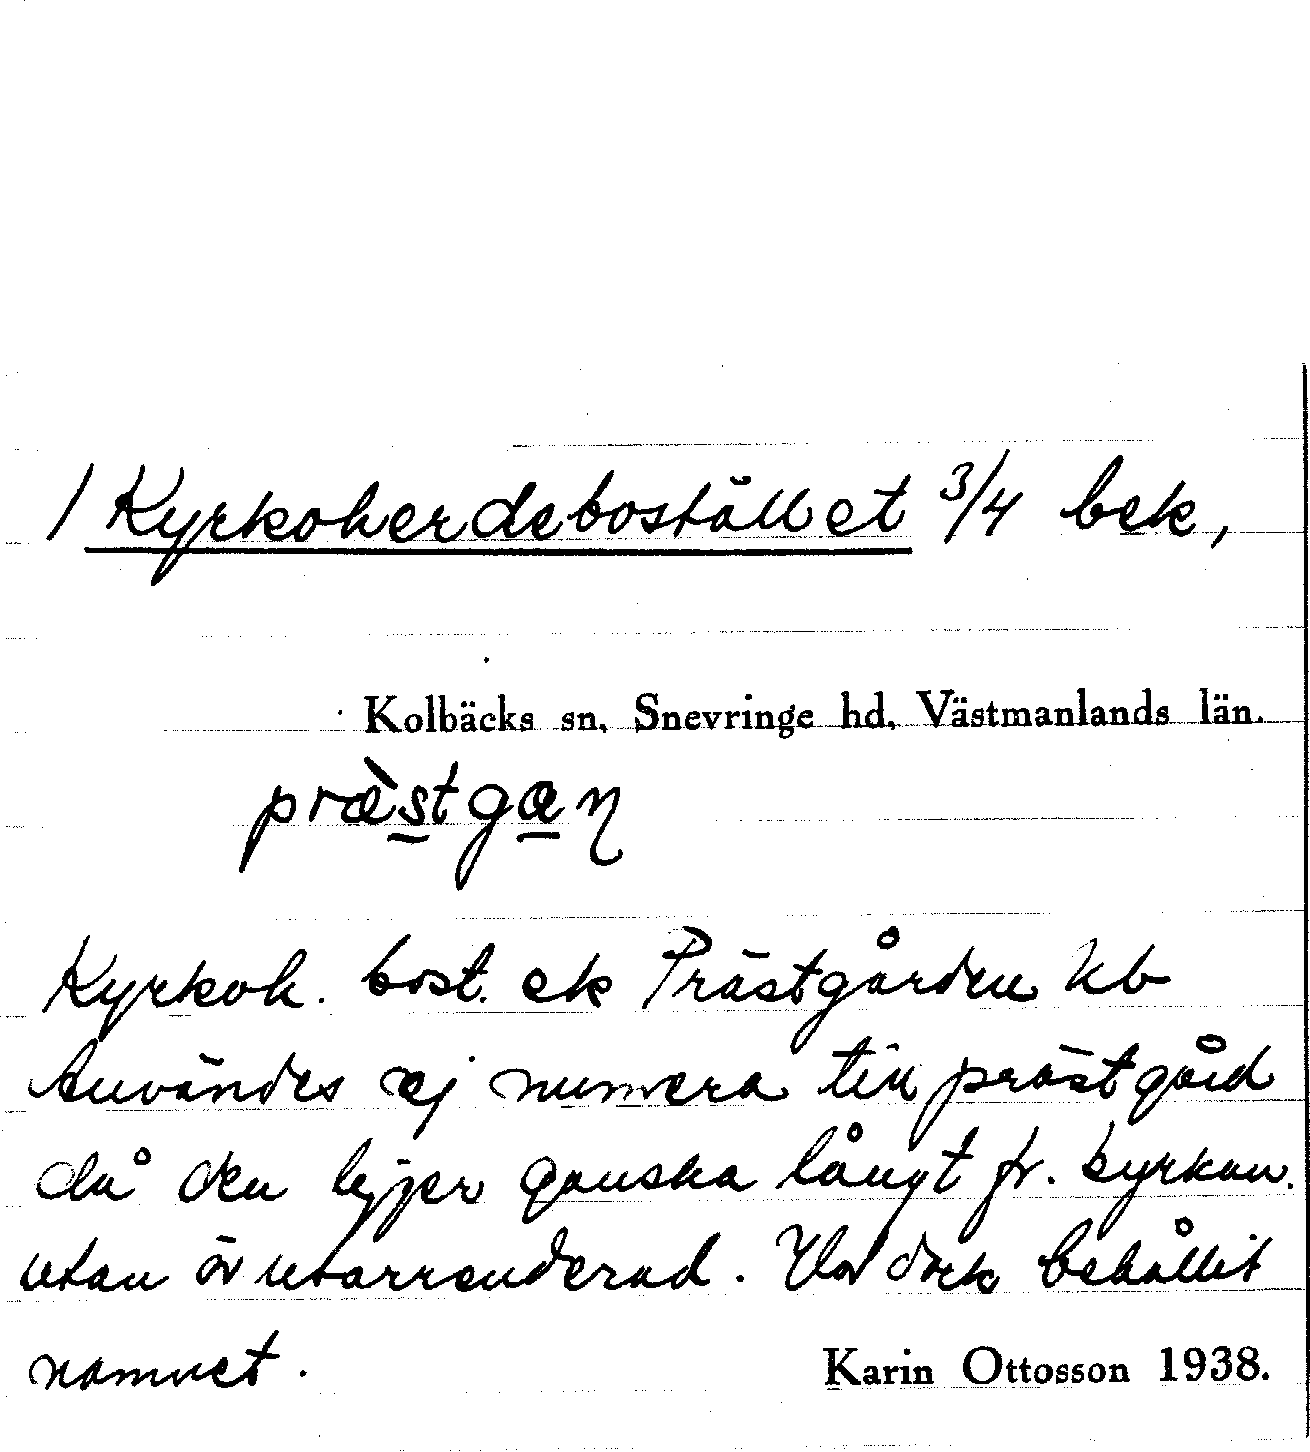 / Kyrkoherdebostället 3/4 bek,
Kolbäcks sn, Snevringe hd, Västmanlands län.
præ̀s̲tga̲ɳ
Kyrkoh. bost. ek Prästgården kb
Användes ej numera till prästgård
då den ligger ganska långt fr. kyrkan.
utan är utarrenderad. Har dock behållit
namnet.
Karin Ottosson 1938.